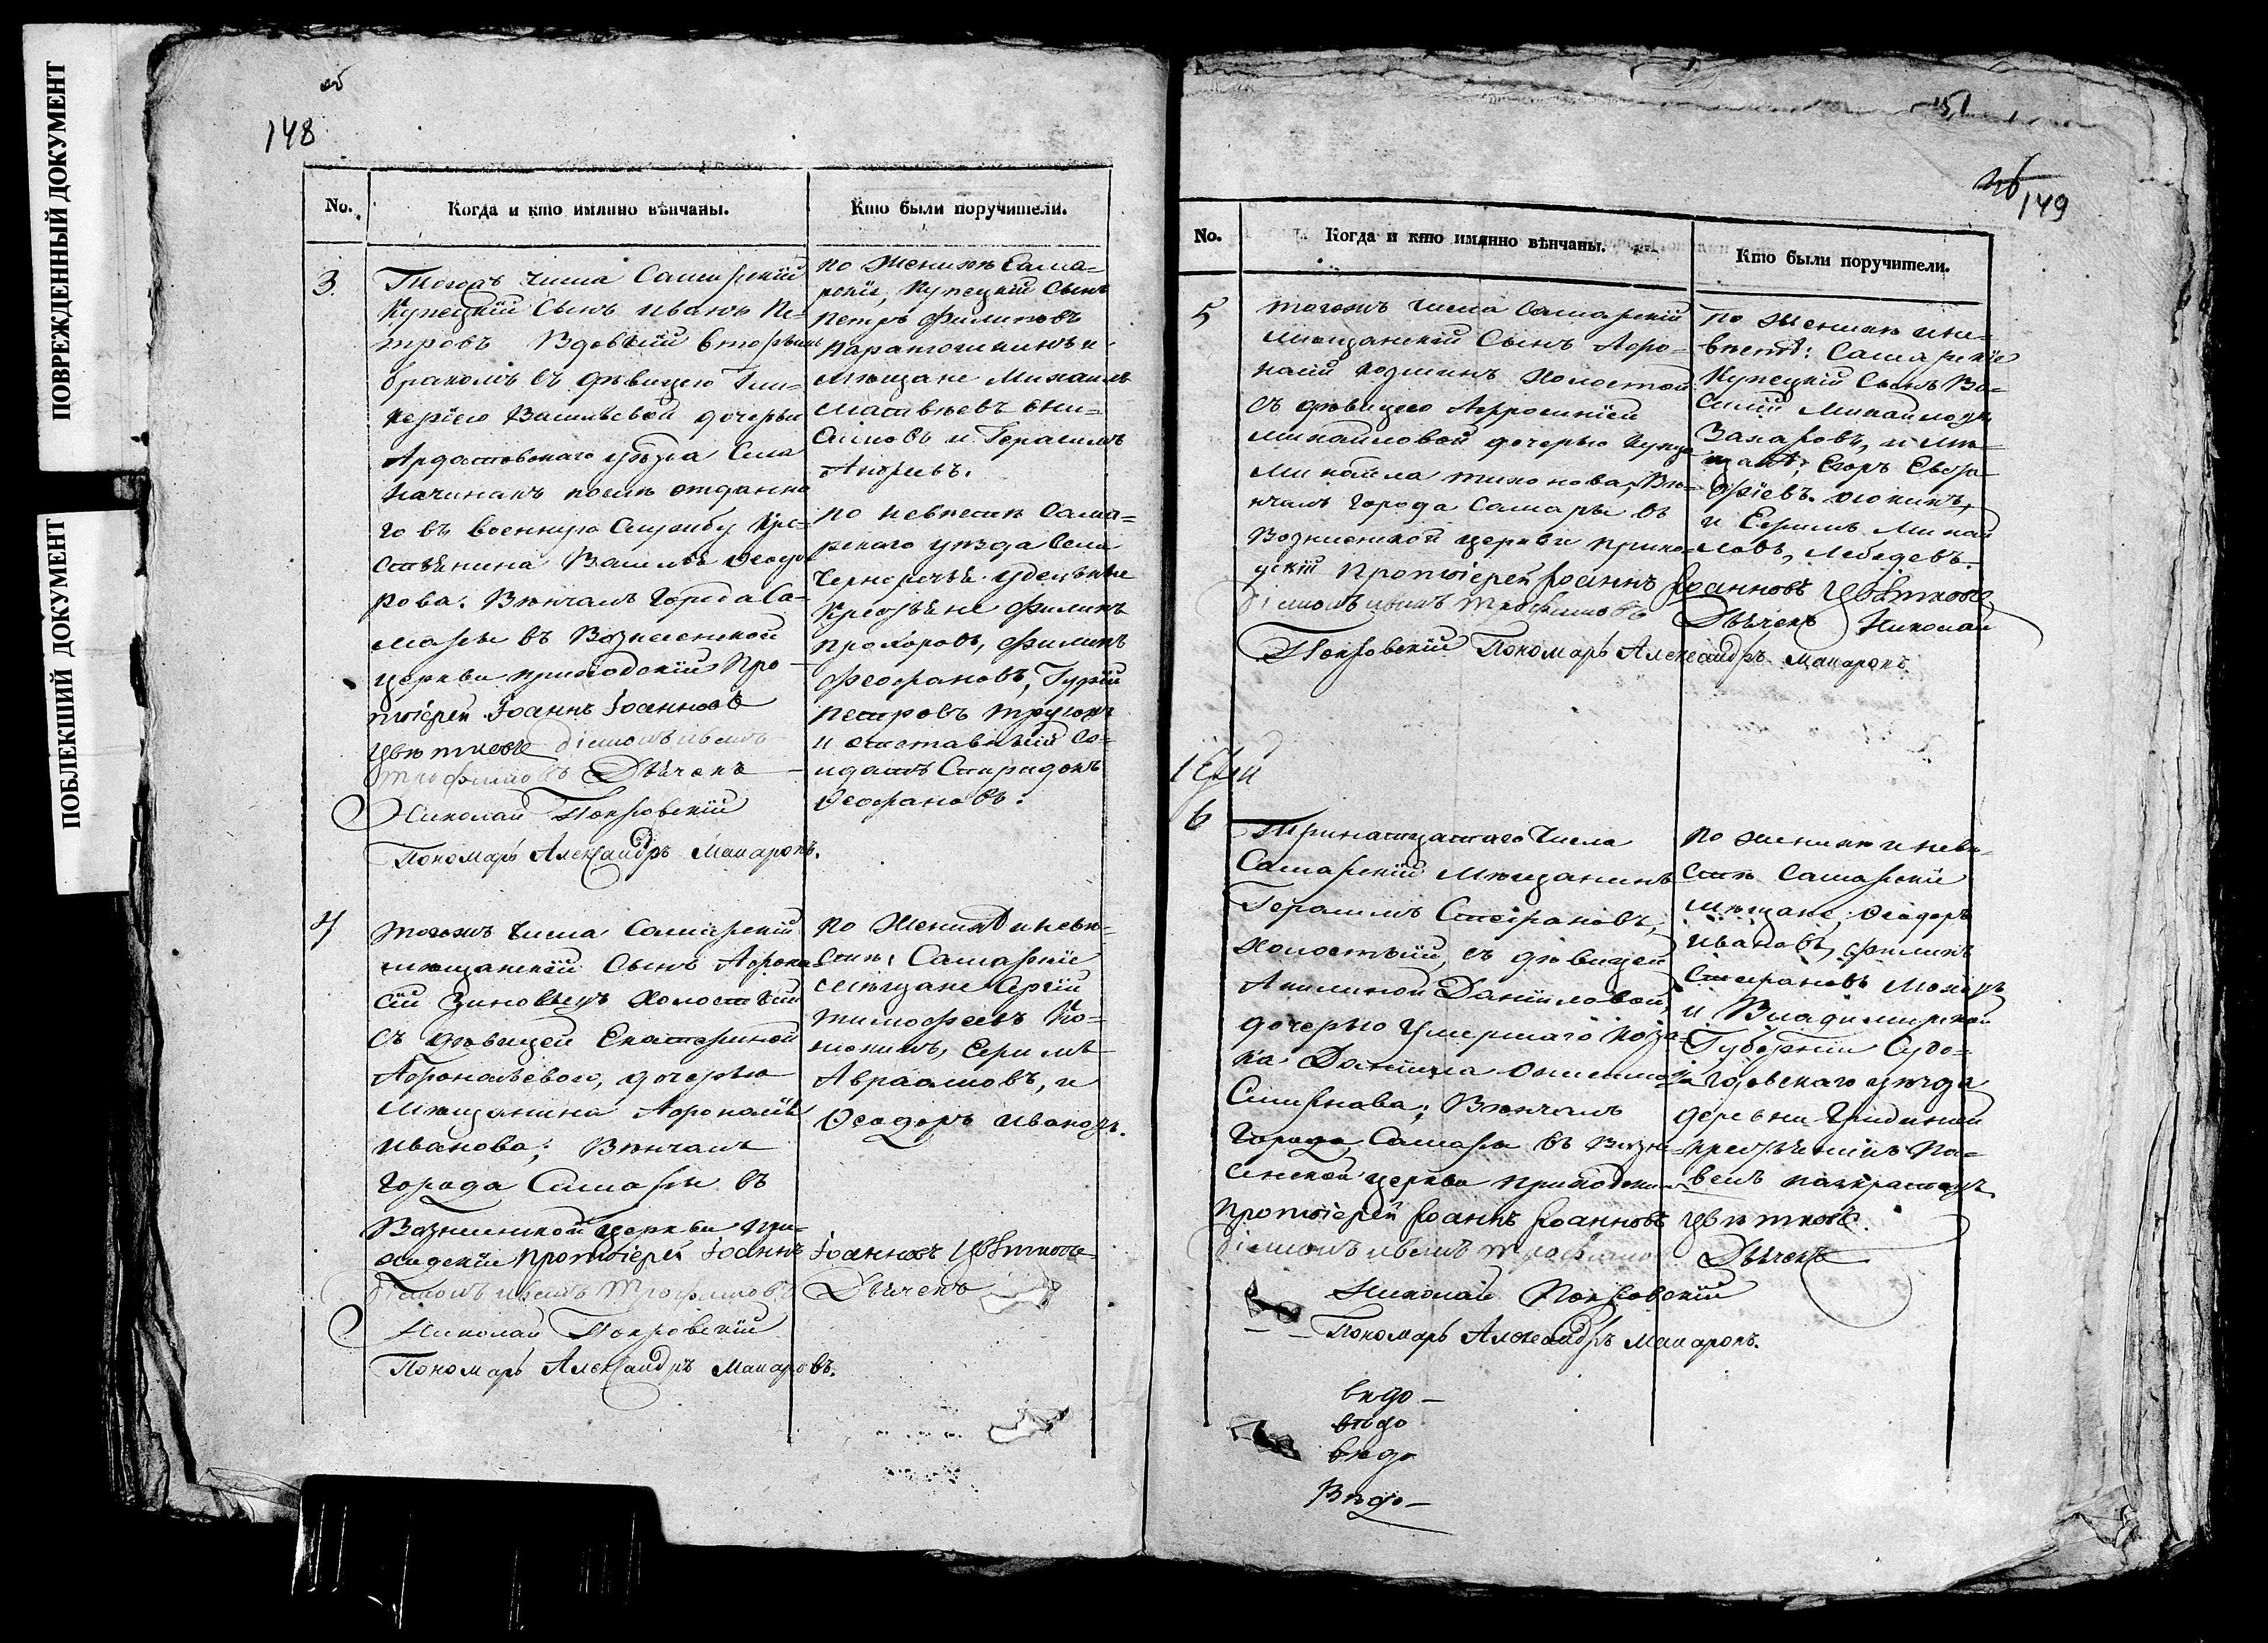 ПОВРЕЖДЕННЫЙ ДОКУМЕНТ
ПОБЛЕКШИЙ ДОКУМЕНТ
об
148
No.
Когда и кто имянно вѣнчаны.
Кто были поручители.
3.
Тогожъ числа Самарскій
Купецкій Сынъ Иванъ Пе=
тровъ Вдовый вторымъ
бракомъ съ дѣвицею Гли=
керіею Васильевой дочерью
Ардатовскаго уѣзда Села
Качинакъ послѣ отданна
го въ военную Службу Кре=
стьянина Василья Ѳеодо
рова. Вѣнчалъ Города Са=
мары въ Вознесенской
церкви приходскій Про-
тоіерей Іоаннъ Іоанновъ
Цвѣтковъ діаконъ
Трофимовъ Дьячекъ
Николай Покровскій
Пономарь Александръ Макаровъ.
по Женихѣ Сама=
рскіе, Купецкій сынъ
Петръ Филиповъ
и
мѣщане Михаилъ
Матвѣевъ Они=
симовъ и Герасимъ
Андреевъ.
по невѣстѣ Сама=
рскаго уѣзда Села
Чернорѣчья удельные
Крестьяне Филипъ
Прохоровъ, Филипъ
Феофановъ, Гурій
Петровъ
и отставный Со=
лдатъ Спиридонъ
Ѳеофановъ.
4
тогожъ числа Самарскій
мѣщанскій Сынъ Афона
сій Зиновьевъ холостый
съ дѣвицей Екатериной
Афонасьевой, дочерью
Мѣщанина Афонасья
Иванова; Вѣнчалъ
города Самары въ
Вознесенской церкви при-
ходскій Протоіерей Іоаннъ Іоанновъ Цвѣтковъ
діаконъ Трофимовъ Дьячекъ
Николай Покровскій
Пономарь Александръ Макаровъ.
по Женихѣ и невѣ=
стѣ: Самарскіе
Мѣщане Сергій
Тимофеевъ Ко=
нюкинъ, Ефимъ
Авраамовъ, и
Ѳеодоръ Ивановъ.
149
No.
Когда и кто имянно вѣнчаны.
Кто были поручители.
5
тогожъ числа Самарскій
Мѣщанскій Сынъ Афо-
насій Козминъ Холостой
съ дѣвицею Афросиніей
Михайловой дочерью Купца
Михайла Тихонова, Вѣ=
нчалъ города Самары въ
Вознесенской церкви прихо-
дскій Протоіерей Іоаннъ Іоанновъ Цвѣтковъ
діаконъ Трофимовъ Дьячекъ Николай
Покровскій Пономарь Александръ Макаровъ.
по женихѣ и не-
вѣстѣ: Самарскіе
Купецкій Сынъ Ва-
силій Михайловъ
Захаровъ, и мѣ-
щанѣ; Егоръ Евста
фіевъ
и Ефимъ Михай
ловъ, Лебедевъ.
6
Тринатцатаго Числа
Самарскій Мѣщанинъ
Герасимъ Стефановъ,
Холостый, съ дѣвицей
Акилиной Даніиловой,
дочерью Умершаго Коза-
ка Даніила
Смирнова; Вѣнчалъ
Города Самары въ Возне-
сенской церкви приходскій
Протоіерей Іоаннъ Іоанновъ Цвѣтковъ.
діаконъ Трофимовъ Дьячекъ
Николай Покровскій
Пономарь Александръ Макаровъ.
по женихѣ и невѣ-
стѣ Самарскіе
мѣщане; Ѳеодоръ
Ивановъ, Филипъ
Стефановъ
и Владимирской
Губерніи Судо-
годскаго уѣзда
деревни
крестьянинъ Па-
велъ Панкратовъ.